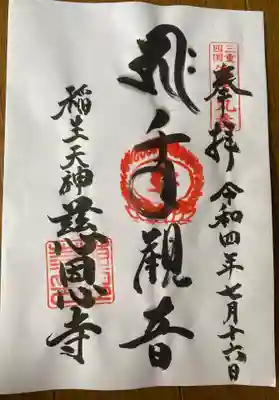 奉拝 令和四年七月十六日
千手觀音
稲生天神 慈恩寺
三重
四国